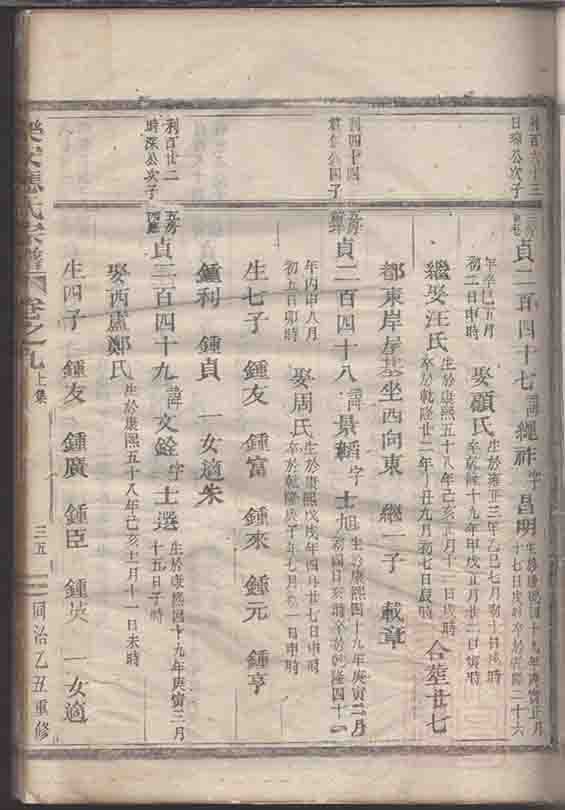 利百六十三
日深公次子
貞二百四十七 諱繩祚 字昌明 生於康熙四十九年庚寅正月
十七日戌時卒於乾隆二十六
年辛巳五月
初二日申時 娶顧氏 生於雍正三年乙巳七月初十日戌時
卒於乾隆十九年甲戌五月廿二日寅時
繼娶汪氏 生於康熙五十八年己亥正月十二日戌時
卒於乾隆廿二年丁丑九月初七日辰時 合葬廿七
都東岸房基坐西向東 繼一子 載章
利四十四
公四子
五房
貞二百四十八 諱景韜 字士旭 生於康熙四十九年庚寅二月
初四日亥時卒於乾隆四十一
年丙申八月
初五日卯時 娶周氏 生於康熙戊戌年四月廿七日申時
卒於乾隆庚子年七月初一日申時
生七子 鍾友 鍾富 鍾來 鍾元 鍾亨
鍾利 鍾貞 一女適朱
利百廿二
時深公次子
五房
貞二百四十九 諱文銓 字士選 生於康熙四十九年庚寅三月
十五日子時
娶西盧鄭氏 生於康熙五十八年己亥十一月十一日未時
生四子 鍾友 鍾廣 鍾臣 鍾英 一女適
應氏宗譜 卷之九 上集 三五 同治乙丑重修